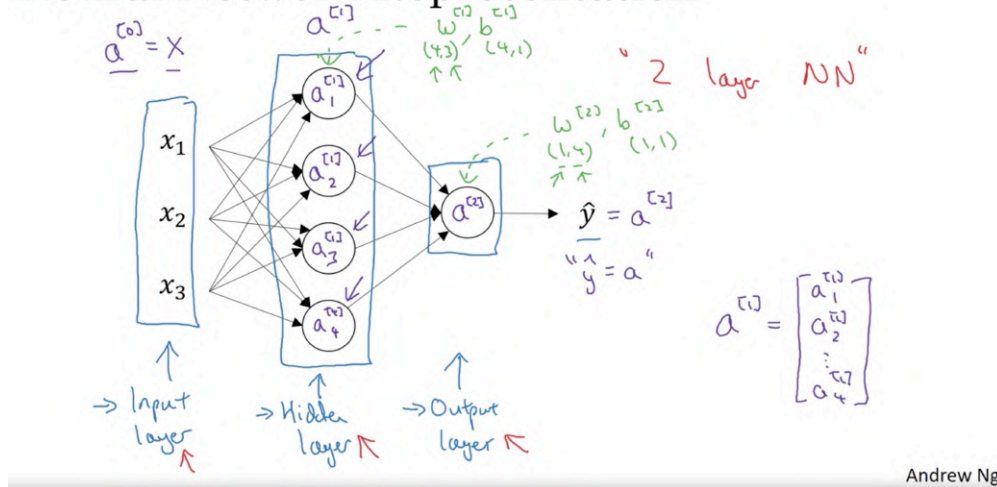 a^[0] = X
a^[1]
w^[1], b^[1]
(4,3) (4,1)
"2 layer NN"
x₁
x₂
x₃
a₁^[1]
a₂^[1]
a₃^[1]
a₄^[4]
a^[2]
w^[2], b^[2]
(1,4) (1,1)
ŷ = a^[2]
"ŷ = a"
a^[1] = [a₁^[1]
a₂^[1]
⋮
a₄^[1]]
→ Input
layer
→ Hidden
layer
→ Output
layer
Andrew Ng